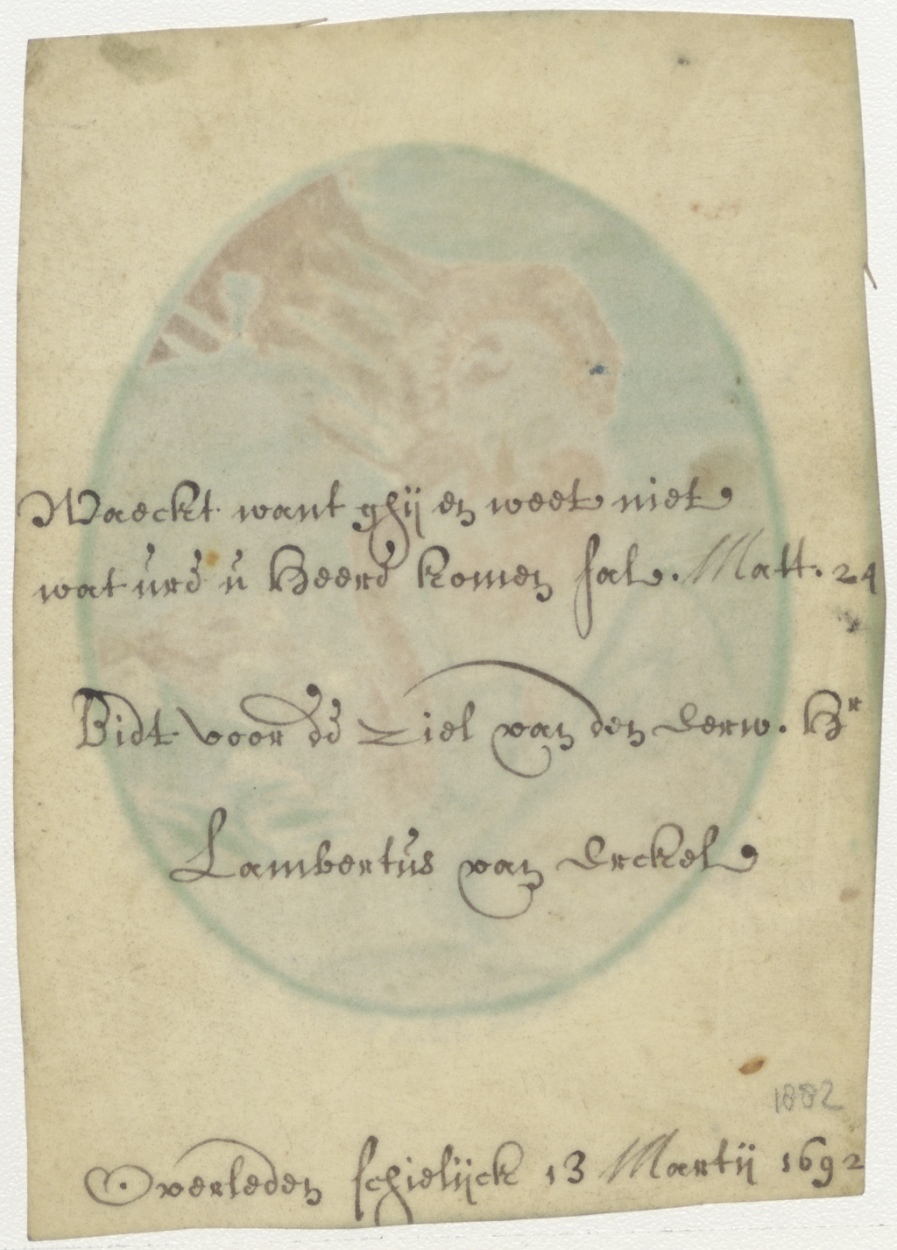 Waeckt want ghij en weet niet
wat ùrd ù Heerd komen sal. Matt. 24
Bidt voor dè Ziel van den Eerw. Hr
Lambertùs van Erckel
1882
Overleden schielijck 13 Martij 1692